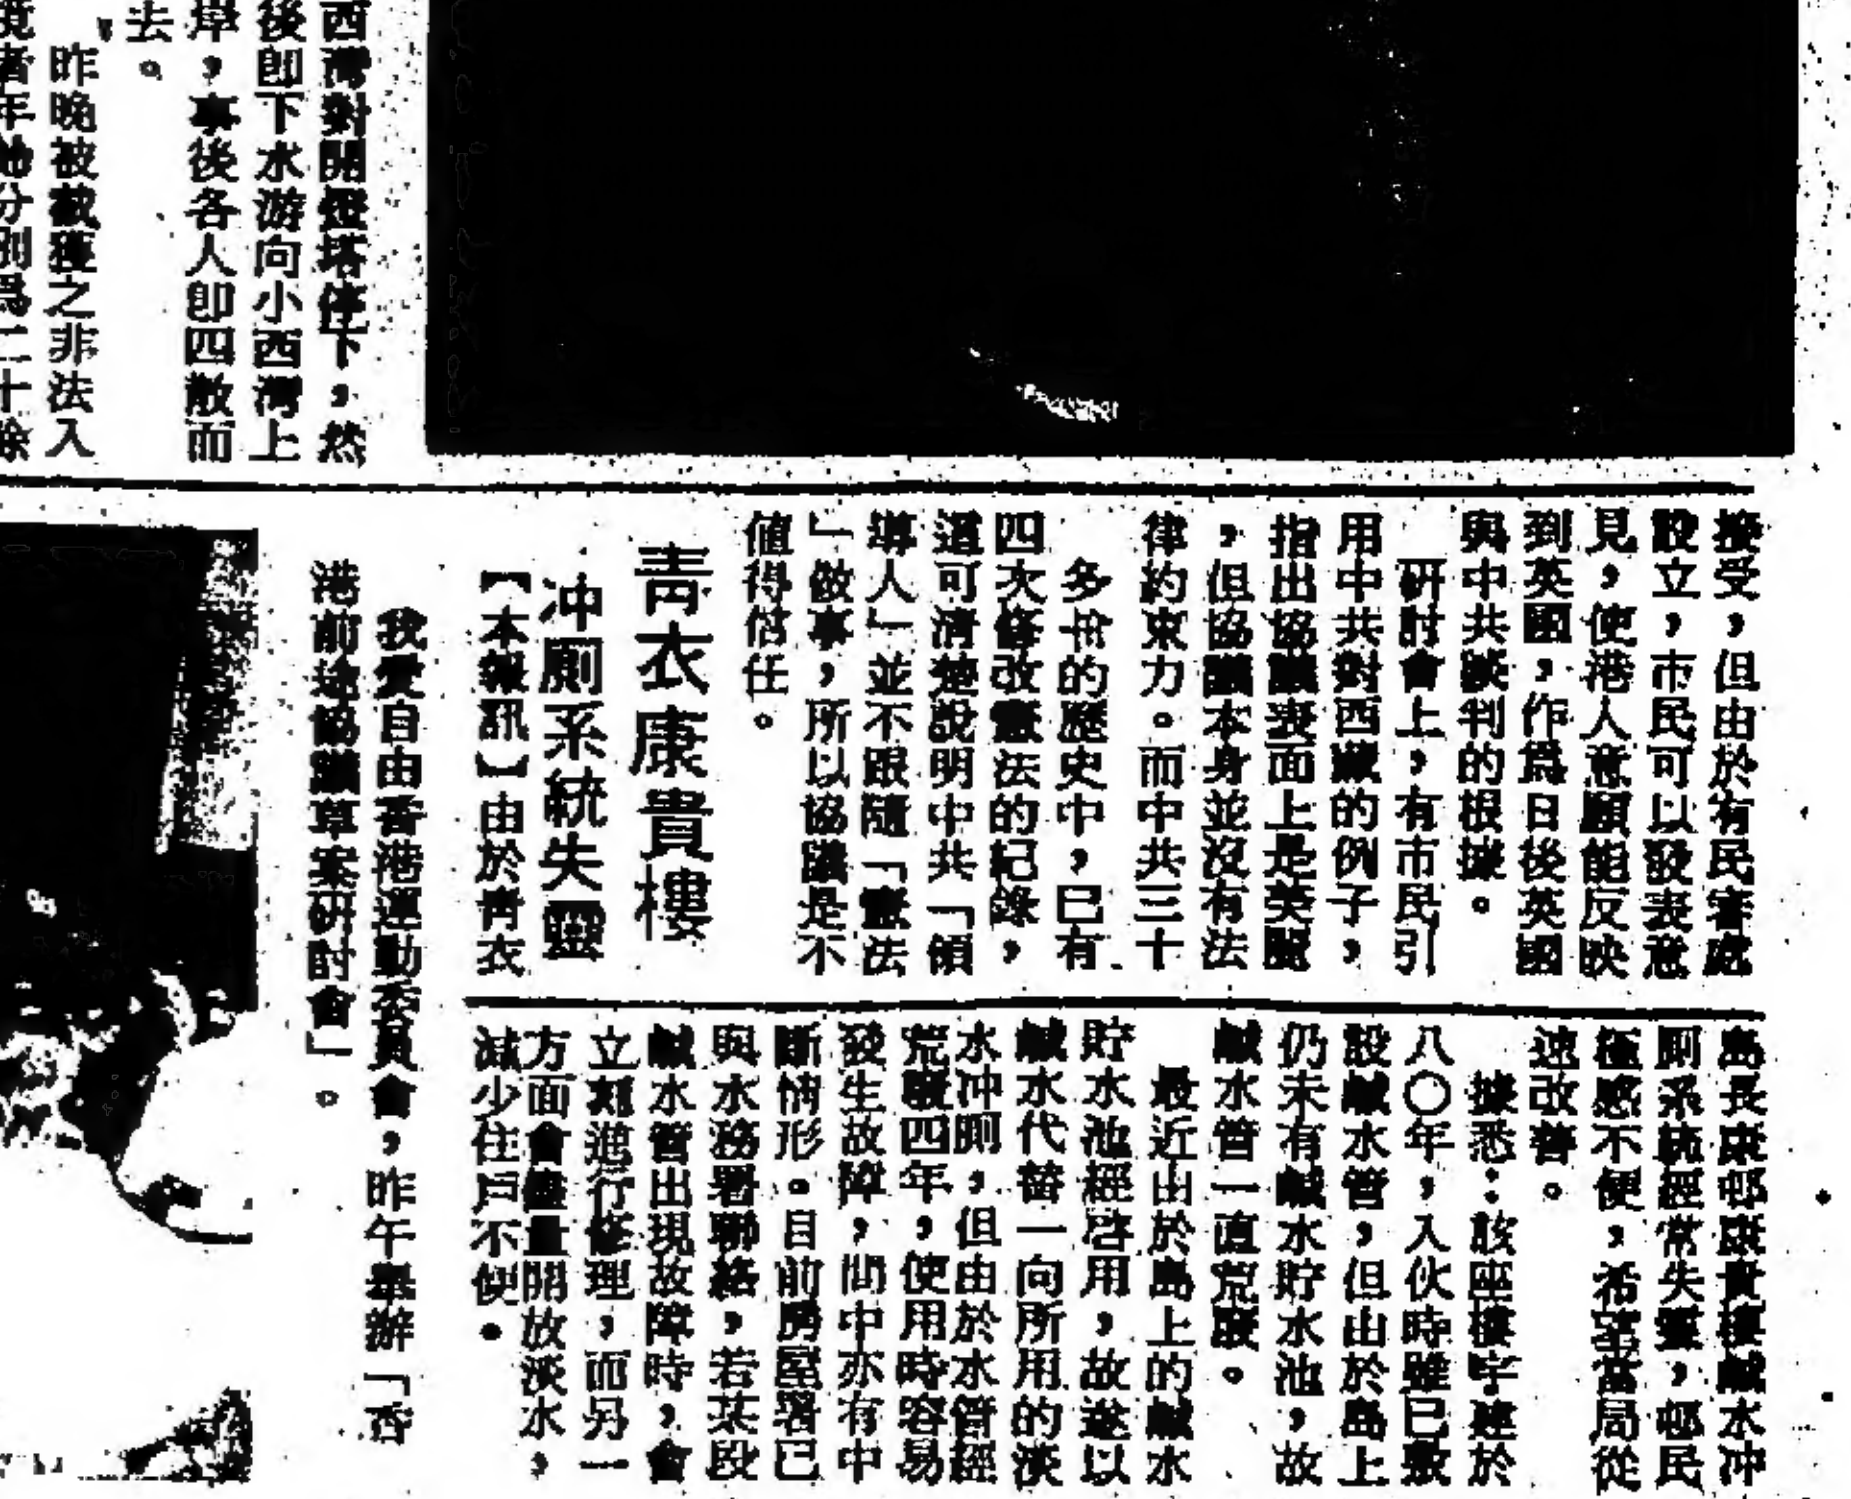 西灣對開燈塔停下，然
後卽下水游向小西灣上
岸，事後各人卽四散而
去。
昨晚被截獲之非法入
境者年齡分別爲二十餘
接受，但由於有民審處
設立，市民可以發表意
見，使港人意願能反映
到英國，作爲日後英國
與中共談判的根據。
研討會上，有市民引
用中共對西藏的例子，
指出協議表面上是美麗
，但協議本身並沒有法
律約束力。而中共三十
多卅的歷史中，已有
四次修改憲法的紀錄，
這可清楚說明中共「領
導人」並不跟隨「憲法
」做事，所以協議是不
値得信任。
青衣康貴樓
冲厠系統失靈
【本報訊】由於青衣
島長康邨康貴樓鹹水冲
厠系統經常失靈，邨民
極感不便，希望當局從
速改善。
據悉：該座樓宇建於
八〇年，入伙時雖已敷
設鹹水管，但由於島上
仍未有鹹水貯水池，故
鹹水管一直荒廢。
最近由於島上的鹹水
貯水池經啓用，故遂以
鹹水代替一向所用的淡
水冲厠，但由於水管經
荒廢四年，使用時容易
發生故障，間中亦有中
斷情形。目前房屋署已
與水務署聯絡，若某段
鹹水管出現故障時，會
立刻進行修理，而另一
方面會盡量開放淡水，
減少住戶不便。
我愛自由香港運動委員會，昨午舉辦「香
港前途協議草案硏討會」。